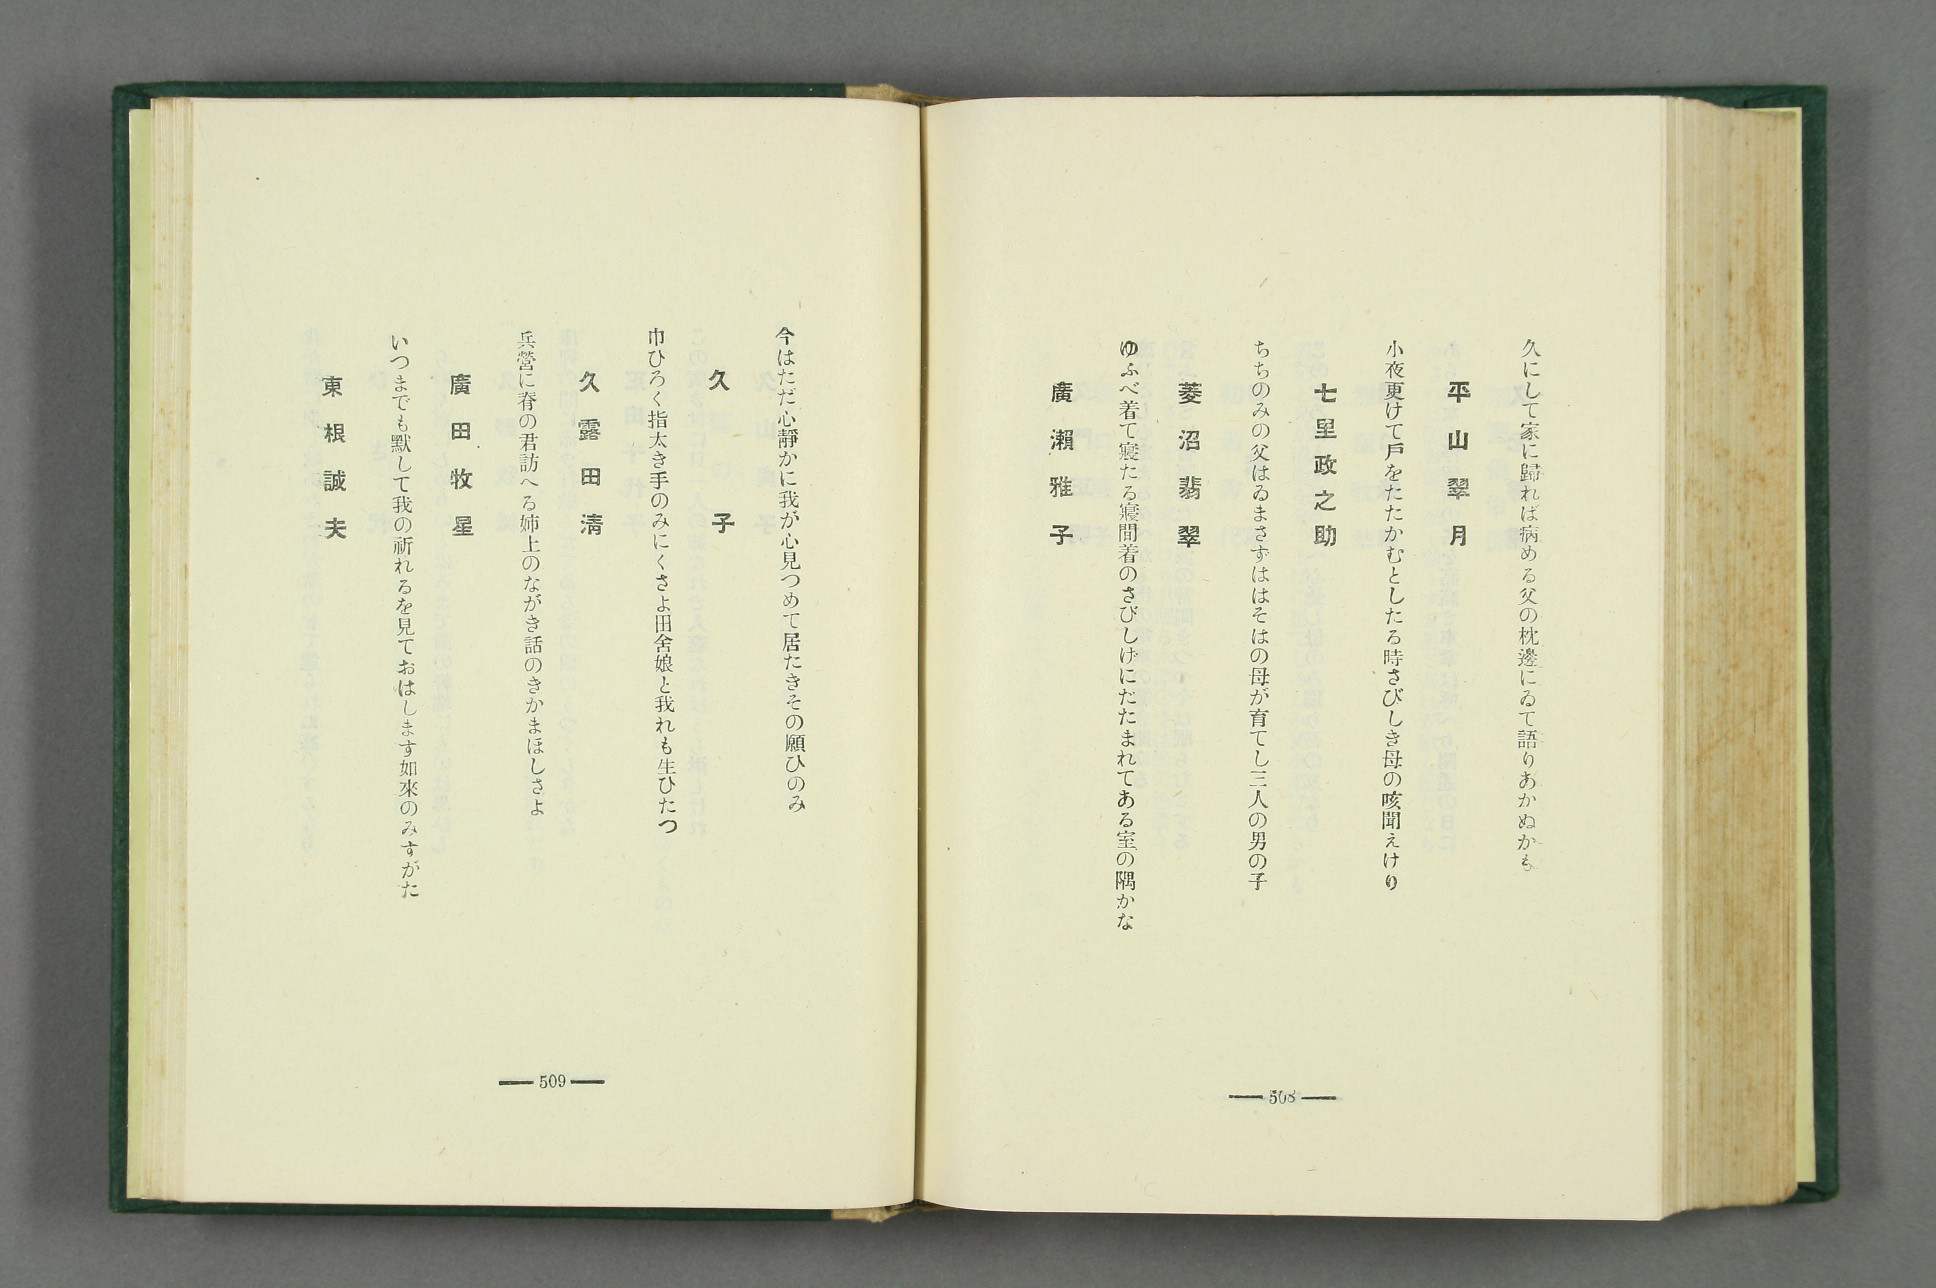 久にして家に歸れば病める父の枕邊にゐて語りあかぬかも
平山翠月
小夜更けて戸をたたかむとしたる時さびしき母の咳聞えけり
七里政之助
ちちのみの父はゐまさずははそはの母が育てし三人の男の子
菱沼翡翠
ゆふべ着て寢たる寢間着のさびしげにたたまれてある室の隅かな
廣瀨雅子
508
今はただ心靜かに我が心見つめて居たきその願ひのみ
久子
巾ひろく指太き手のみにくさよ田舍娘と我れも生ひたつ
久露田淸
兵營に脊の君訪へる姉上のながき話のきかまほしさよ
廣田牧星
いつまでも默して我の祈れるを見ておはします如來のみすがた
東根誠夫
509